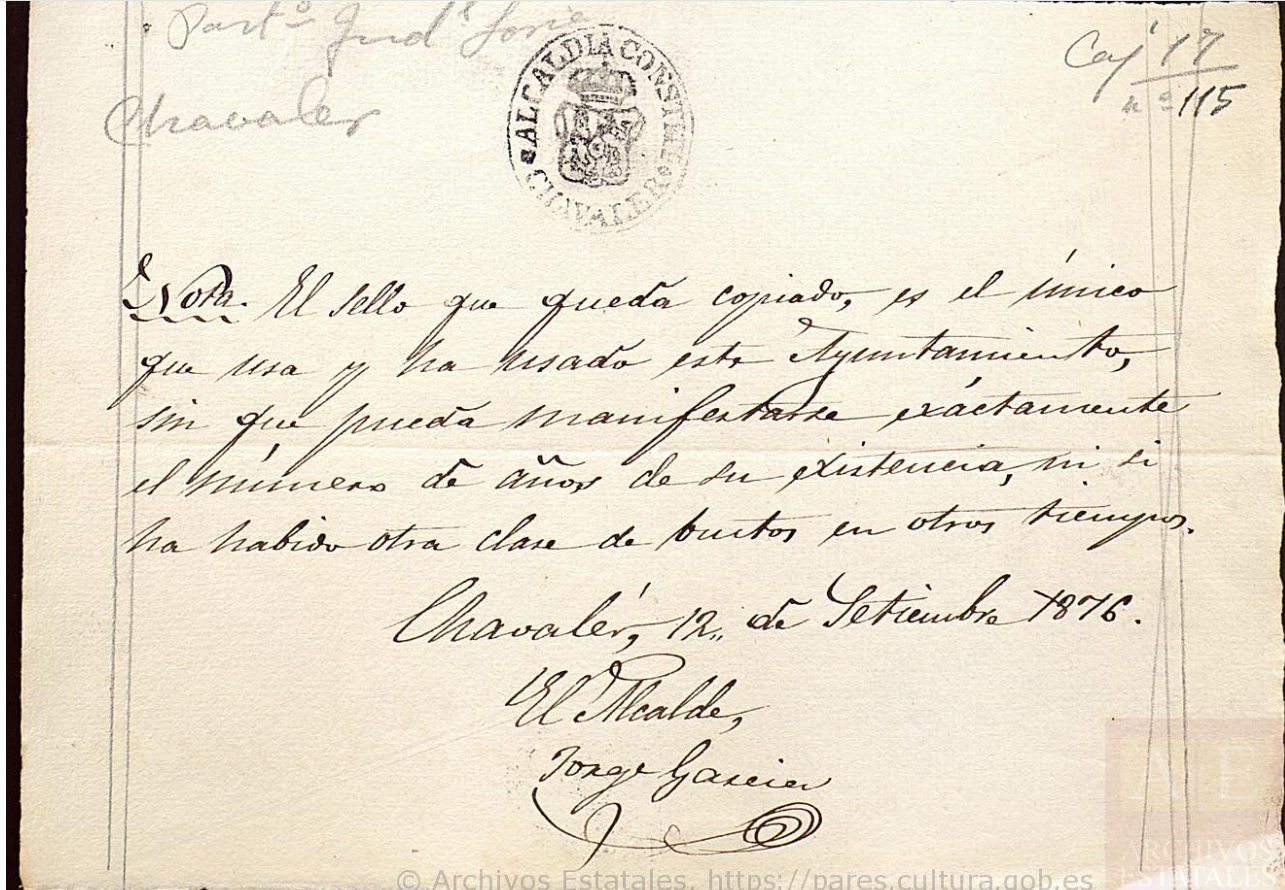 Part.º Jud.l Soria
Chavaler
Caj 17
nº 115
ALCALDIA CONSTNAL
CHAVALER
Nota. El sello que queda copiado, es el único
que usa y ha usado este Ayuntamiento,
sin que pueda manifestarse exáctamente
el número de años de su existencia, ni si
ha habido otra clase de bustos en otros tiempos.
Chavalér, 12,, de Setiembre 1876.
El Alcalde,
Jorge Garcia
AE
ARCHIVOS
ESTATALES
© Archivos Estatales, https://pares.cultura.gob.es